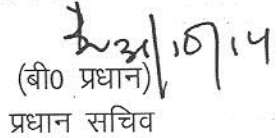 31/10/14
(बी0 प्रधान)
प्रधान सचिव